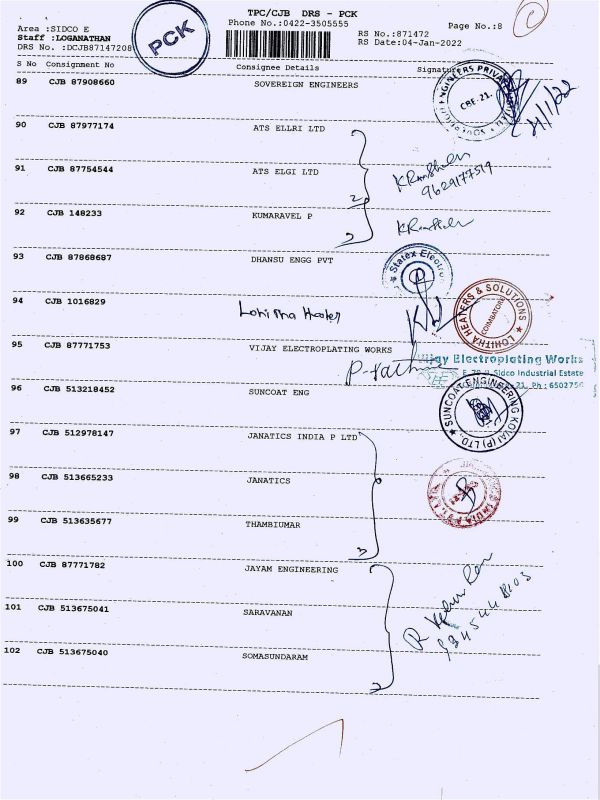 TPC/CJB DRS - PCK
Phone No.:0422-3505555
Page No.:8
Area :SIDCO E
Staff :LOGANATHAN
DRS No. :DCJB87147208
PCK
RS No.:871472
RS Date:04-Jan-2022
S No Consignment No Consignee Details Signature
89 CJB 87908660 SOVEREIGN ENGINEERS
CBE-21
4/1/22
90 CJB 87977174 ATS ELLRI LTD
91 CJB 87754544 ATS ELGI LTD
9629177519
2
92 CJB 148233 KUMARAVEL P
2
93 CJB 87868687 DHANSU ENGG PVT
Statex Electro
94 CJB 1016829 Lohitha Heater
LOHITHA HEATERS & SOLUTIONS
COIMBATORE
95 CJB 87771753 VIJAY ELECTROPLATING WORKS
Vijay Electroplating Works
Sidco Industrial Estate
21, Ph : 650275
96 CJB 513218452 SUNCOAT ENG
SUNCOAT ENGINEERING KOVAI (P) LTD.,
97 CJB 512978147 JANATICS INDIA P LTD
98 CJB 513665233 JANATICS
99 CJB 513635677 THAMBIUMAR
3
100 CJB 87771782 JAYAM ENGINEERING
101 CJB 513675041 SARAVANAN
102 CJB 513675040 SOMASUNDARAM